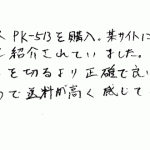 PK-513を購入。某サイトに
紹介されていました。
を切るより正確で良い
で送料が高く感じて